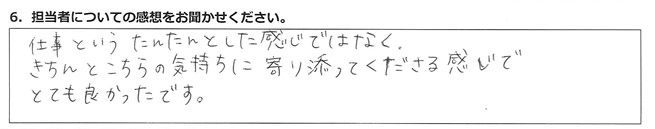 6. 担当者についての感想をお聞かせください。
仕事という たんたんとした感じではなく、
きちんとこちらの気持ちに寄り添ってくださる感じで
とても良かったです。